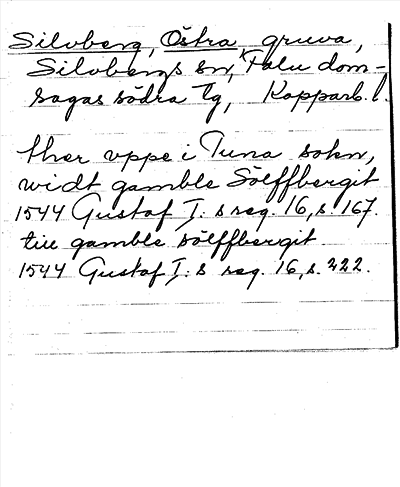 Silvberg, Östra, gruva,
Silvbergs sn, Falu dom-
sagas södra tg, Kopparb. l.
ther uppe i Tuna sokn,
widt gamble Sölffbergit
1544 Gustaf I:s reg. 16, s. 167.
till gamble sölffbergit.
1544 Gustaf I:s reg. 16, s. 222.